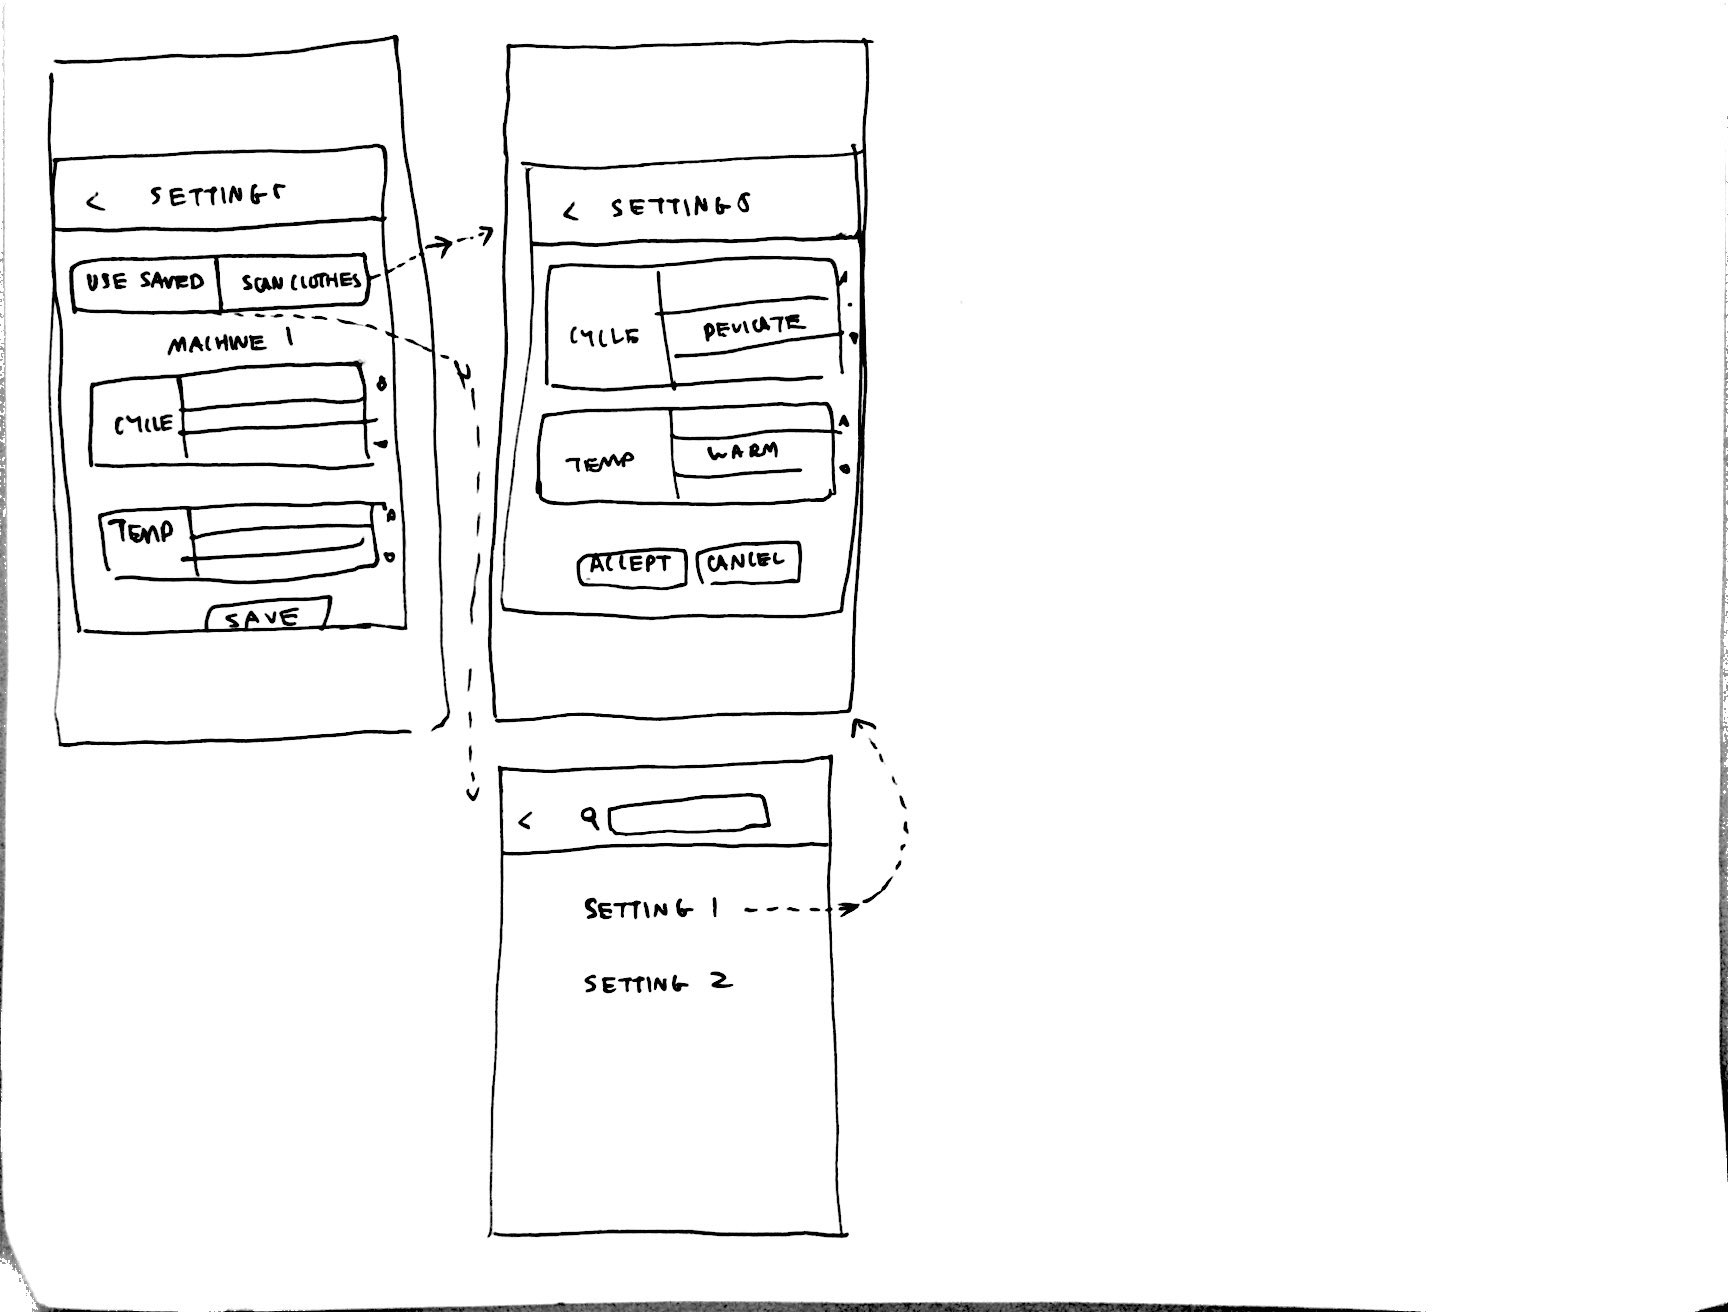 < SETTINGS
USE SAVED SCAN CLOTHES
MACHINE 1
CYCLE
TEMP
SAVE
< SETTINGS
CYCLE DELICATE
TEMP WARM
ACCEPT CANCEL
<
SETTING 1
SETTING 2